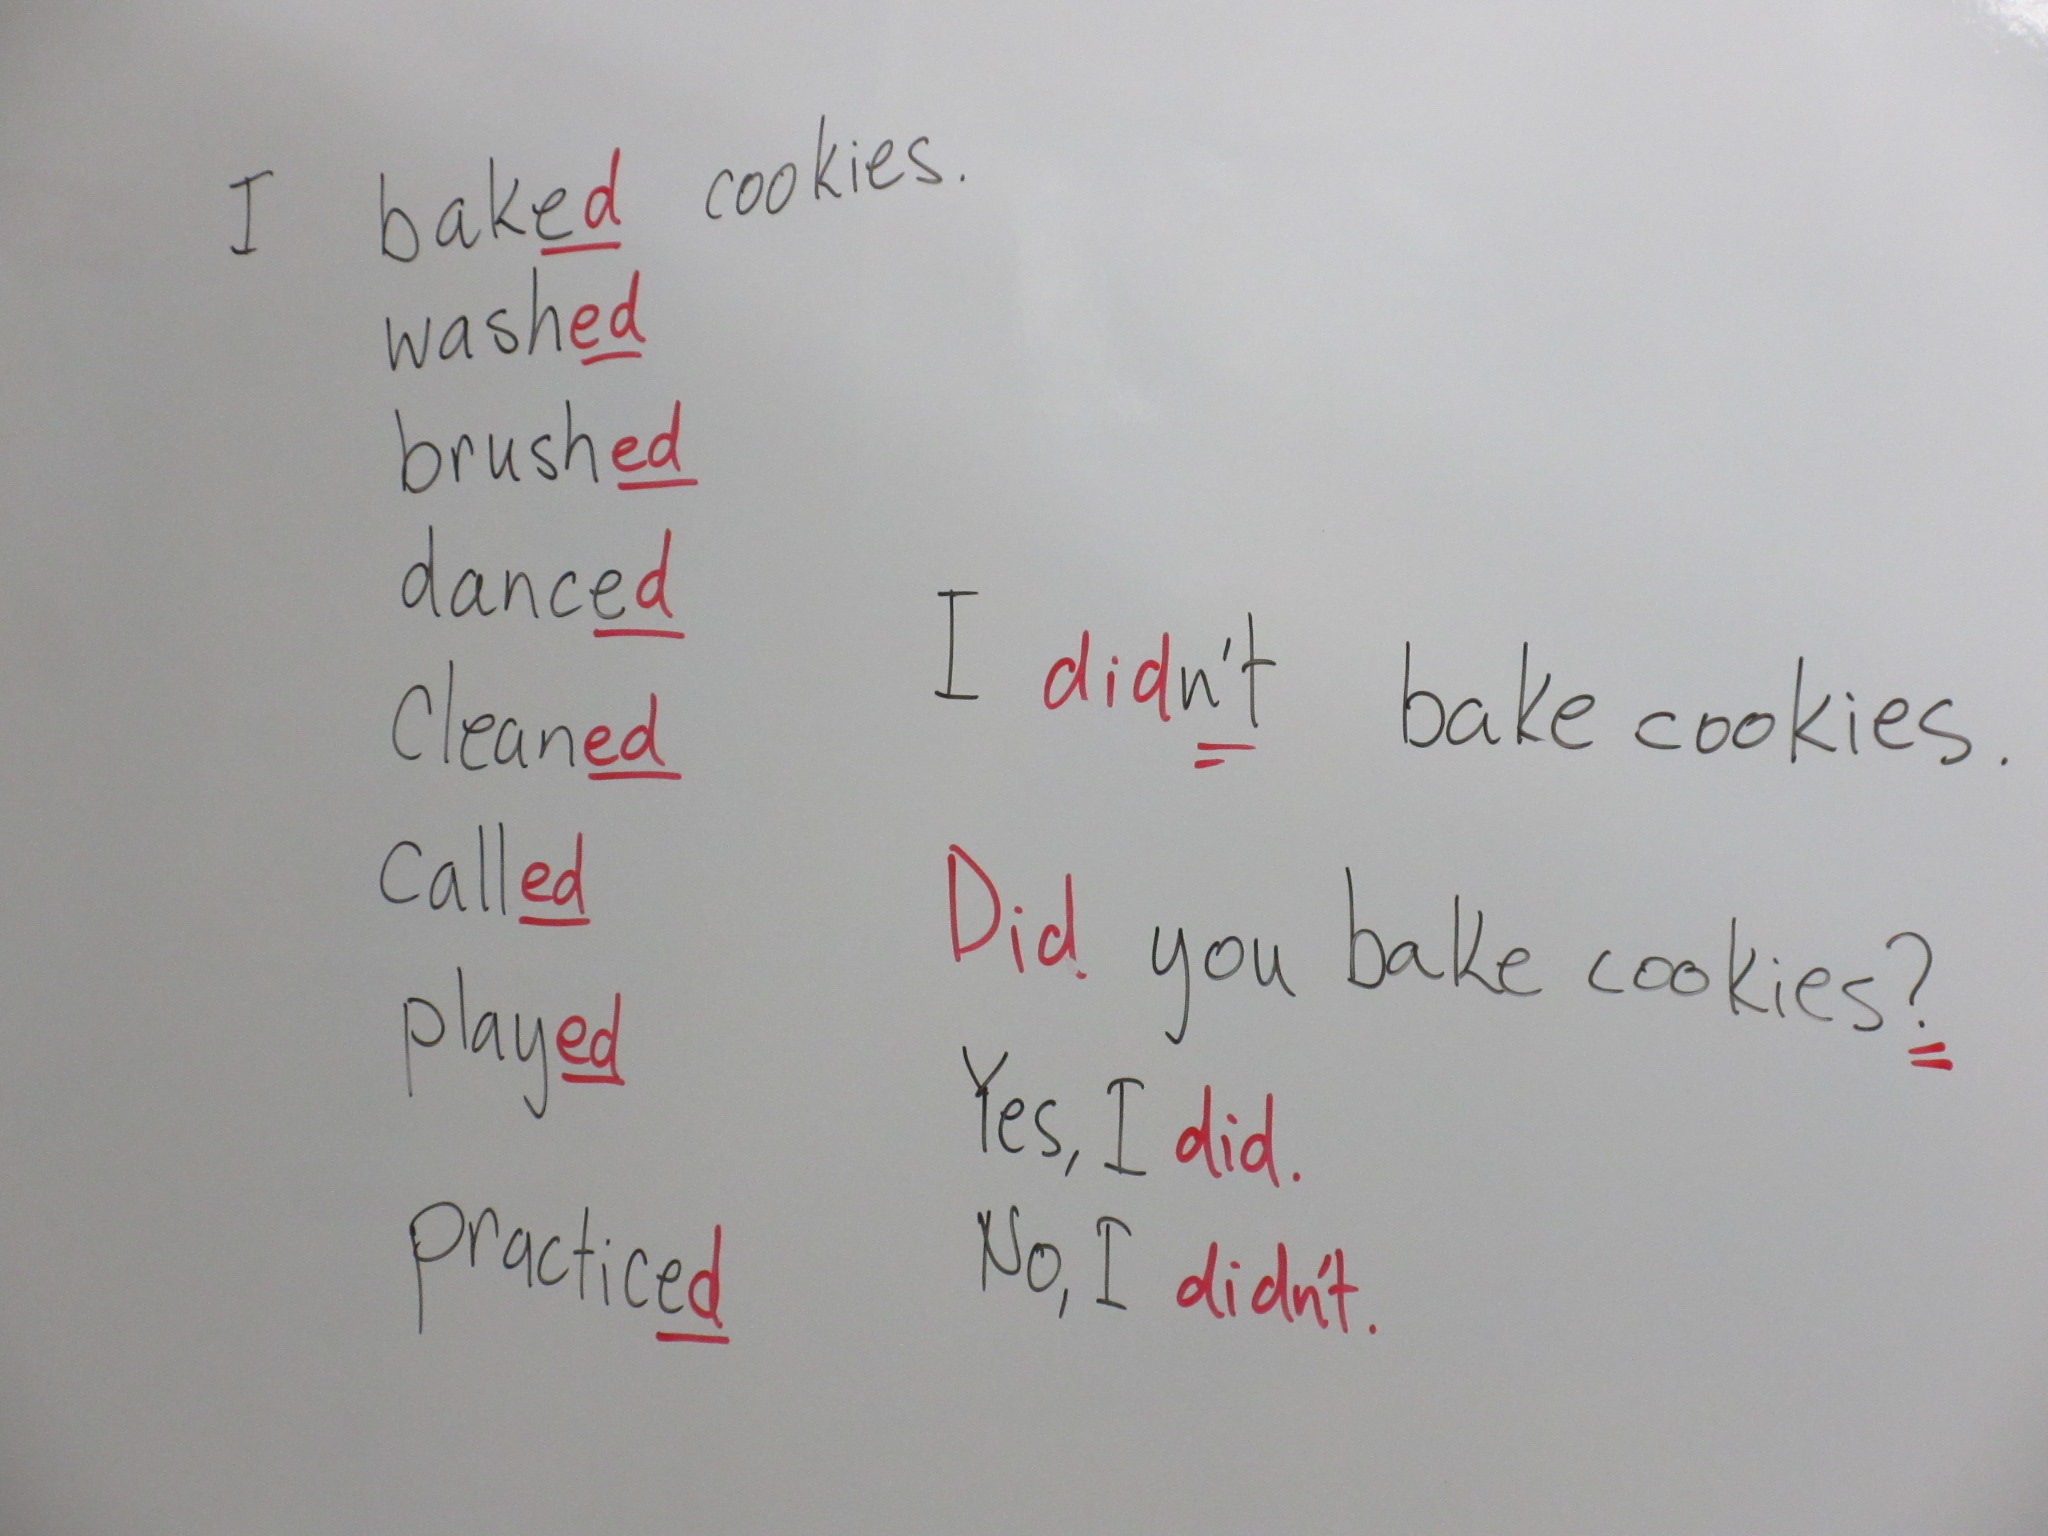 I baked cookies.
washed
brushed
danced
Cleaned
Called
played
practiced
I didn't bake cookies.
Did you bake cookies?
Yes, I did.
No, I didn't.